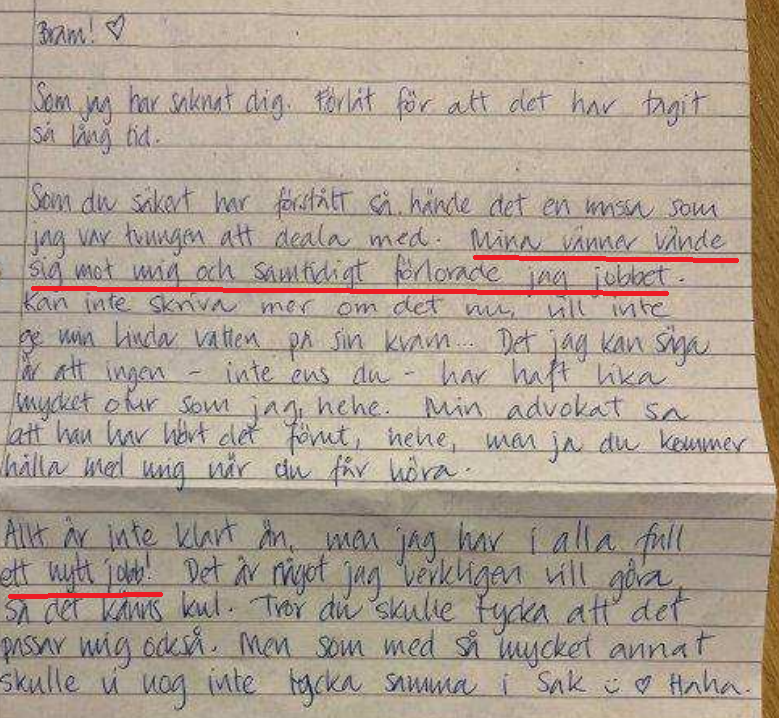 Bram! ♡
Som jag har saknat dig. Förlåt för att det har tagit
så lång tid.
Som du säkert har förstått så hände det en massa som
jag var tvungen att deala med. Mina vänner vände
sig mot mig och samtidigt förlorade jag jobbet.
Kan inte skriva mer om det nu, vill inte
ge min Linda vatten på sin kvarn... Det jag kan säga
är att ingen - inte ens du - har haft lika
mycket otur som jag, hehe. Min advokat sa
att han har hört det förut, hehe, men ja du kommer
hålla med mig när du får höra.
Allt är inte klart än, men jag har i alla fall
ett nytt jobb! Det är något jag verkligen vill göra
så det känns kul. Tror du skulle tycka att det
passar mig också. Men som med så mycket annat
skulle vi nog inte tycka samma i sak :) ♡ Haha.